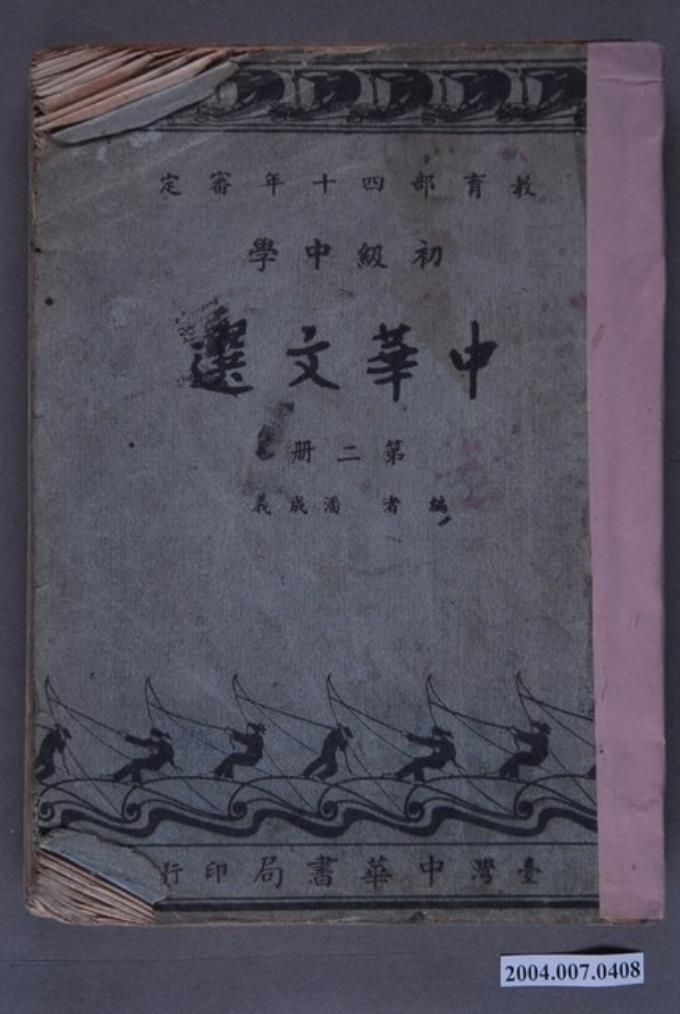 教育部四十年審定
初級中學
中華文選
第二冊
編者 潘成義
臺灣中華書局印行
2004.007.0408